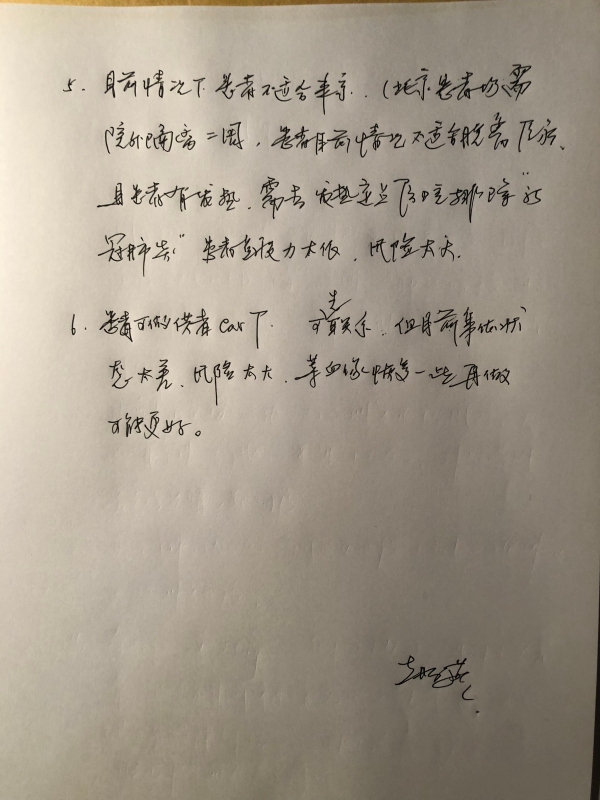 5. 目前情况下患者不适合来京.（北京患者均需
院外隔离二周，患者目前情况不适合脱离医院、
且患者有发热，需去发热定点医院排除“新
冠肺炎” 患者抵抗力太低，风险太大.
6. 患者可做供者car T. 可先联系，但目前身体状
态太差，风险太大，等血象恢复一些再做
可能更好。